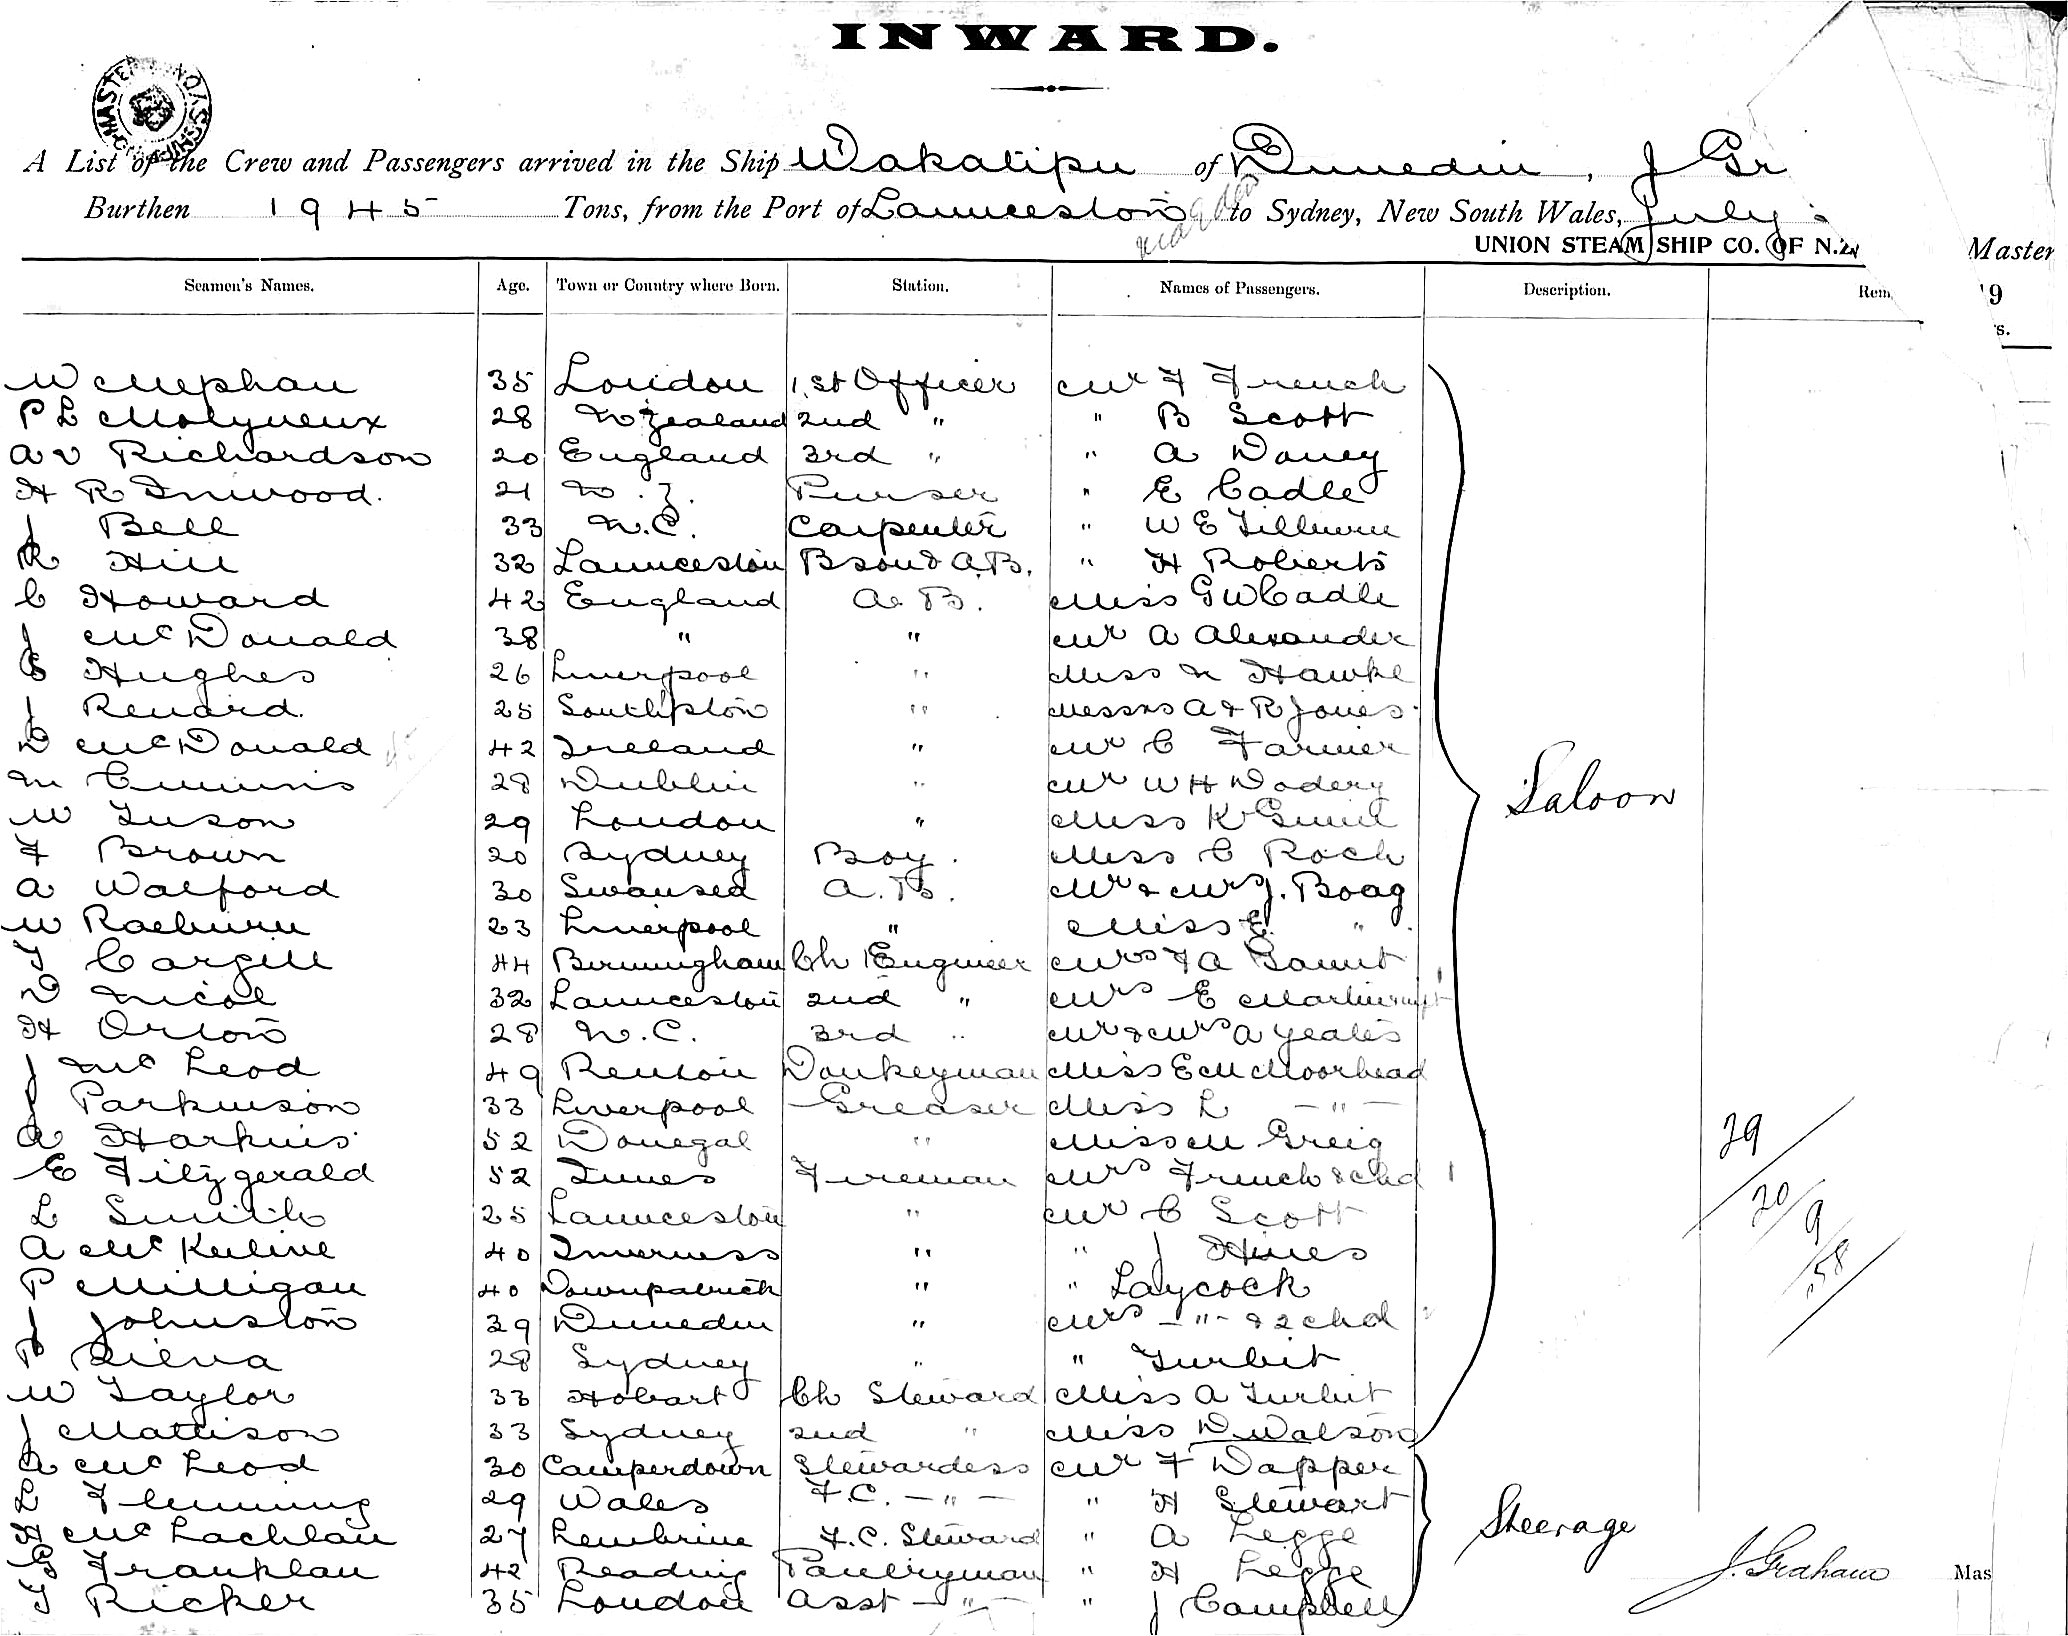 INWARD.
A List of the Crew and Passengers arrived in the Ship Wakatipu of Dunedin, J Gr
Burthen 1945 Tons, from the Port of Launceston to Sydney, New South Wales, July
UNION STEAM SHIP CO. OF N.Z. Master
Seamen's Names. Age. Town or Country where Born. Station. Names of Passengers. Description. Rem 19
s.
W Mephan 35 London 1st Officer Mr F French
P L Molyneux 28 N Zealand 2nd " " B Scott
A V Richardson 20 England 3rd " " A Davey
H R Inwood. 21 N.Z. Purser " E Cadle
J Bell 33 N.C. Carpenter " W E
R Hill 32 Launceston Bson & A.B. " H Roberts
C Howard 42 England A.B. Miss G W Cadle
J McDonald 38 " " Mr A Alexander
Hughes 26 Liverpool " Miss N Hawke
J Renard. 25 Southpton " Messrs A & R Jones
D McDonald 42 Ireland " Mr C Farmer
M 28 Dublin " Mr W H Dodery
W Tuson 29 London " Miss K
F Brown 20 Sydney Boy. Miss C Roch
A Walford 30 Swansea A.B. Mr & Mrs J. Boag
W Raeburn 23 Liverpool " Miss E. "
T Cargill 44 Birmingham Ch Engineer Mrs F A Gaunt
D Nicol 32 Launceston 2nd " Mrs E
H Orton 28 N.C. 3rd " Mr & Mrs A Yeates
J McLeod 49 Renton Donkeyman Miss E M Moorhead
J Parkinson 33 Liverpool Greaser Miss L - " -
A Harkins 52 Donegal " Miss M Greig
E Fitzgerald 52 Fireman Mrs French & chd 1
L Smith 25 Launceston " Mr C Scott
A 40 Inverness " " J Hines
P Milligan 40 Downpatrick " " Laycock
J Johnston 39 Dunedin " Mrs - " - & 2 chd 2
P Silva 28 Sydney " " Turbit
W Taylor 33 Hobart Ch Steward Miss A Turbit
J Mattison 33 Sydney 2nd " Miss D Watson
Saloon
29
20/9
58
A McLeod 30 Camperdown Stewardess Mr F Dapper
L Flemming 29 Wales F.C. - " - " H Stewart
H McLachlan 27 F.C. Steward " A Legge
G Franklan 42 Reading Pantryman " H Legge
T Ricker 35 London Asst - " - " J Campbell
Steerage
J. Graham Mas